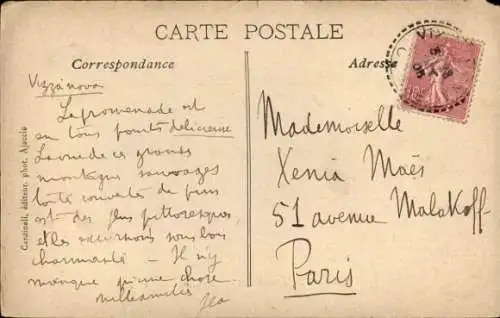 CARTE POSTALE
Correspondance
Adresse
Vizzavona
La promenade est
en tous points délicieuse
La vue de ces grands
montagnes sauvages
toute couvertes de pins
est des plus pittoresques,
et les sous bois
charmants — Il n'y
manque qu'une chose
Mademoiselle
Xenia Maës
51 avenue Malakoff
Paris
Cardinali, éditeur, phot. Ajaccio